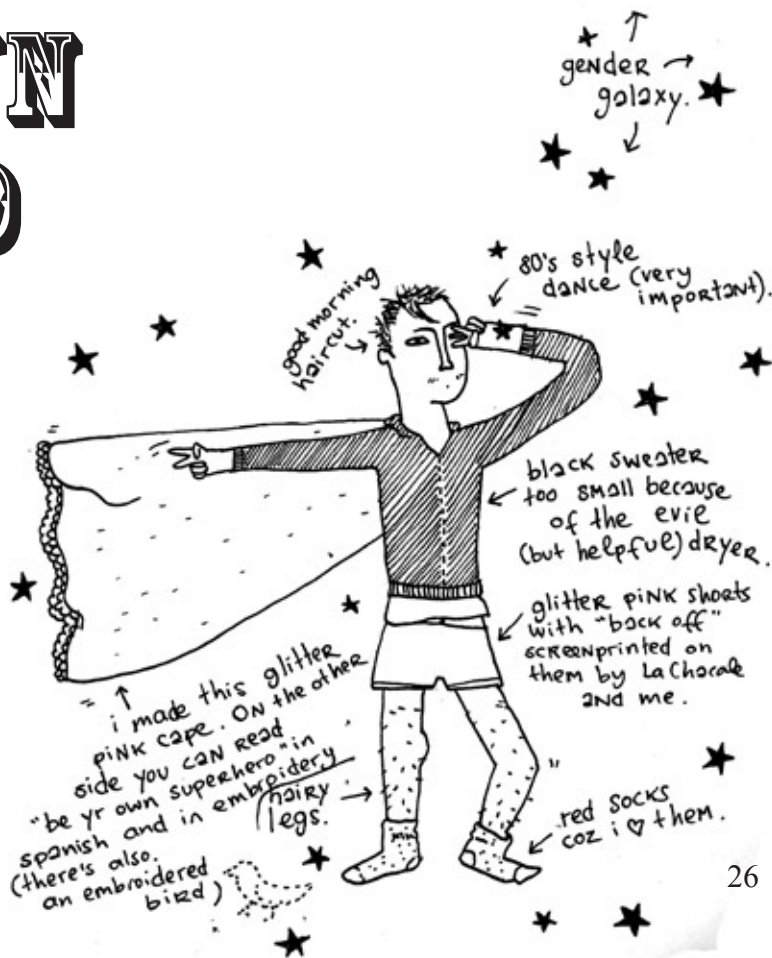 N
gender
galaxy.
80's style
dance (very
important).
good morning
haircut.
black sweater
too small because
of the evil
(but helpful) dryer.
glitter pink shorts
with "back off"
screenprinted on
them by La Chocale
and me.
i made this glitter
pink cape. On the other
side you can read
"be yr own superhero" in
spanish and in embroidery
(there's also
an embroidered
bird)
hairy
legs.
red socks
coz i ♡ them.
26